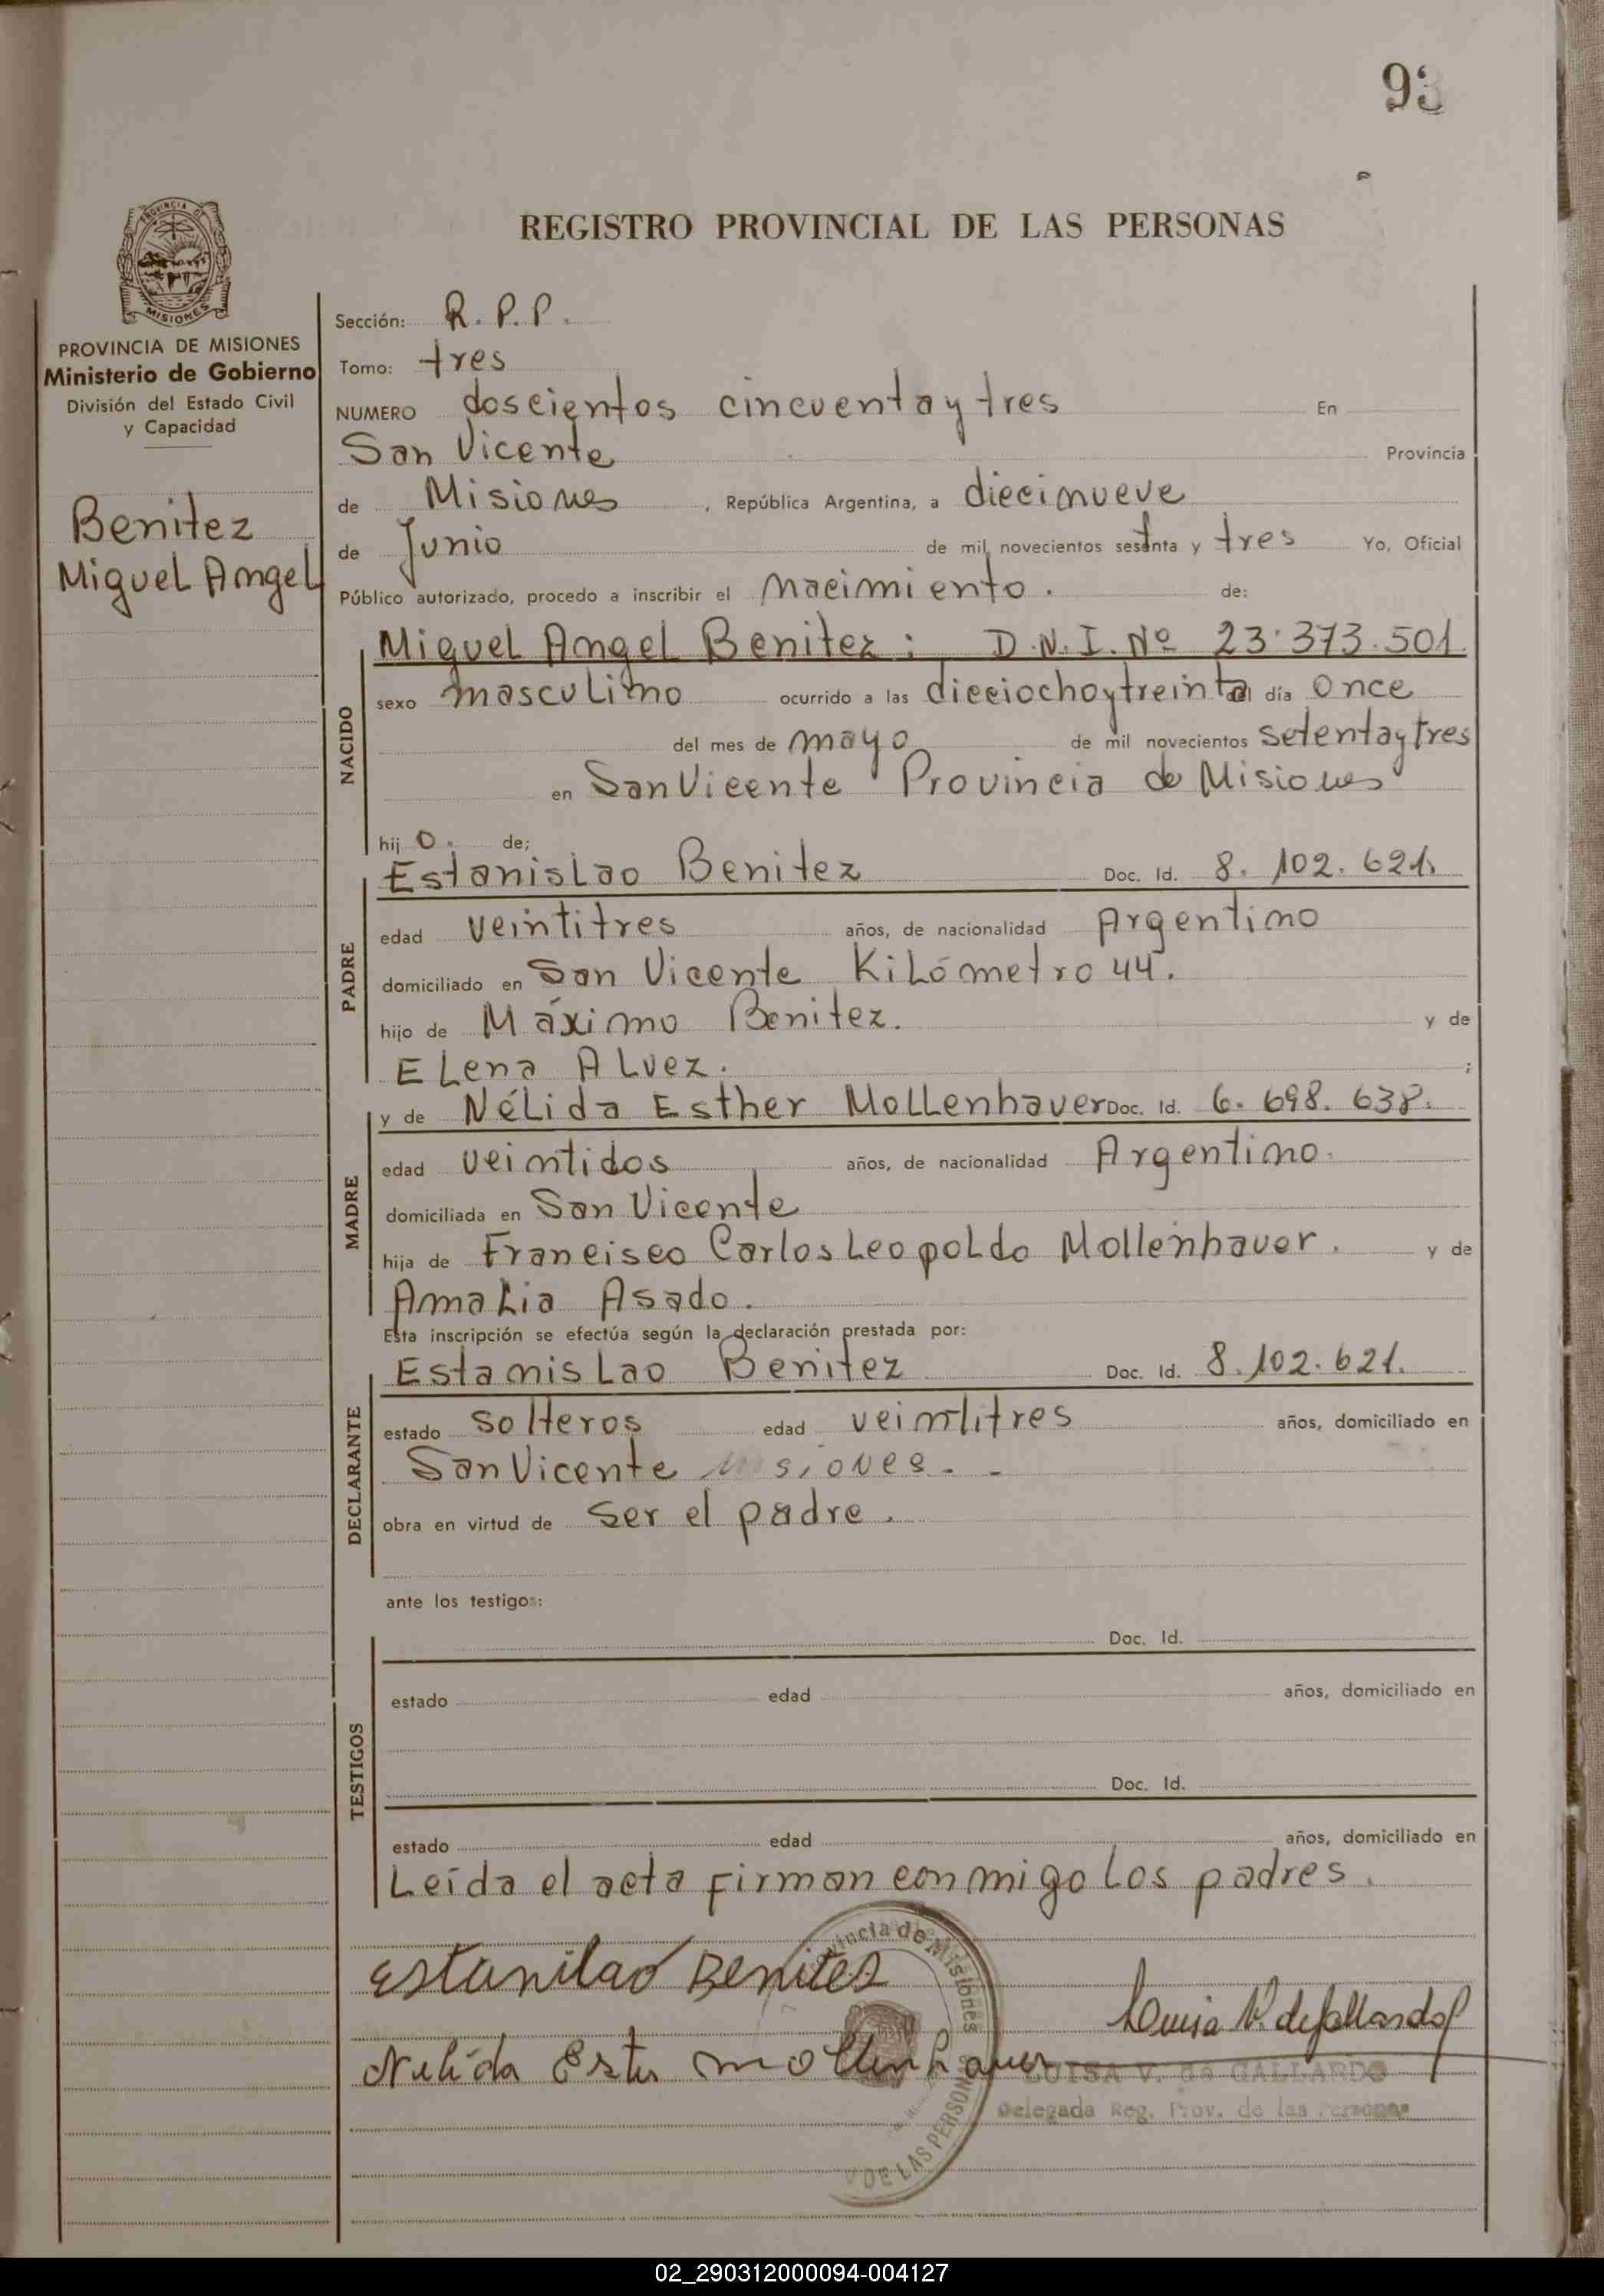 93
REGISTRO PROVINCIAL DE LAS PERSONAS
PROVINCIA DE
MISIONES
PROVINCIA DE MISIONES
Ministerio de Gobierno
División del Estado Civil
y Capacidad
Benitez
Miguel Angel
Sección: R. P. P.
Tomo: tres
NUMERO doscientos cincuenta y tres En
San Vicente Provincia
de Misiones, República Argentina, a diecinueve
de Junio de mil novecientos setenta y tres Yo, Oficial
Público autorizado, procedo a inscribir el nacimiento. de:
NACIDO
Miguel Angel Benitez: D.N.I. Nº 23.373.501
sexo masculino ocurrido a las dieciocho y treinta del día once
del mes de mayo de mil novecientos setenta y tres
en San Vicente Provincia de Misiones
hijo. de;
PADRE
Estanislao Benitez Doc. Id. 8.102.621.
edad veintitres años, de nacionalidad Argentino
domiciliado en San Vicente Kilómetro 44.
hijo de Máximo Benitez. y de
Elena Alvez. ;
MADRE
y de Nélida Esther Mollenhauer Doc. Id. 6.698.638.
edad veintidos años, de nacionalidad Argentino.
domiciliada en San Vicente
hija de Francisco Carlos Leopoldo Mollenhauer. y de
Amalia Asado.
Esta inscripción se efectúa según la declaración prestada por:
DECLARANTE
Estanislao Benitez Doc. Id. 8.102.621.
estado solteros edad veintitres años, domiciliado en
San Vicente Misiones. -
obra en virtud de ser el padre.
ante los testigos:
TESTIGOS
Doc. Id.
estado edad años, domiciliado en
Doc. Id.
estado edad años, domiciliado en
Leída el acta firman conmigo los padres.
Estanilao Benites
Luisa V. de Gallardo
Nelida Ester mollenhauer
LUISA V. de GALLARDO
Delegada Reg. Prov. de las Personas
vincia de Misiones
DE LAS PERSONAS
02_290312000094-004127